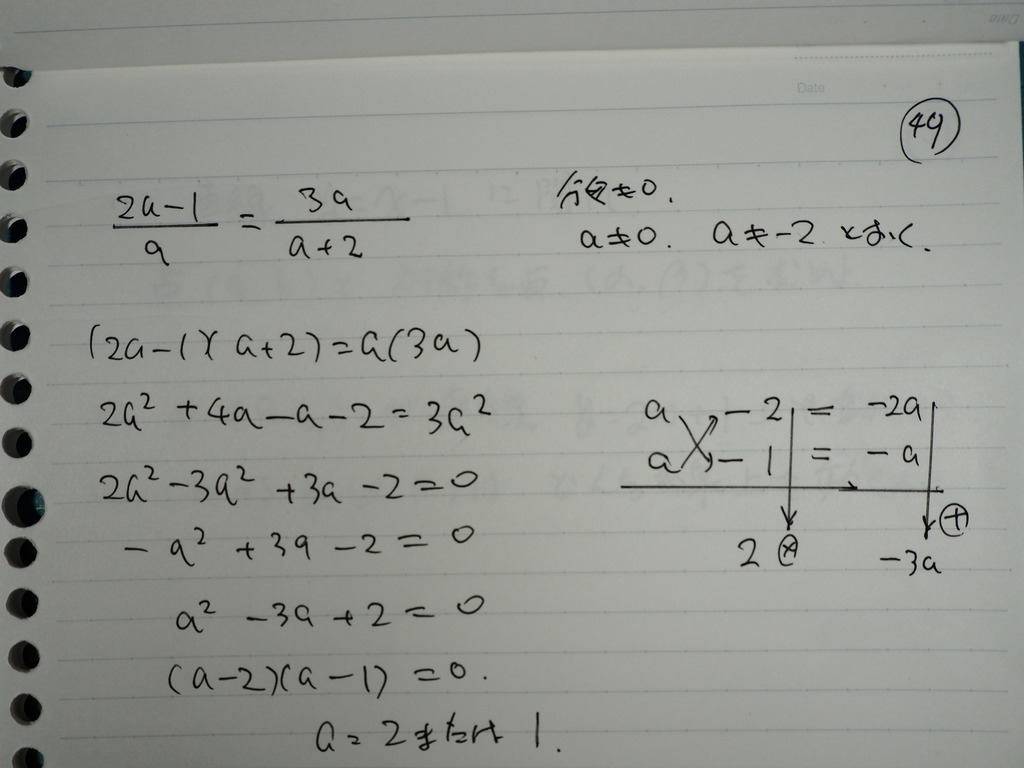 Date
49
(2a-1)/a = 3a/(a+2)
分母≠0.
a≠0. a≠-2 とおく.
(2a-1)(a+2)=a(3a)
2a²+4a-a-2=3a²
2a²-3a²+3a-2=0
-a²+3a-2=0
a²-3a+2=0
(a-2)(a-1)=0.
a=2または1.
a -2 = -2a
a -1 = -a
2 ⊗ -3a ⊕